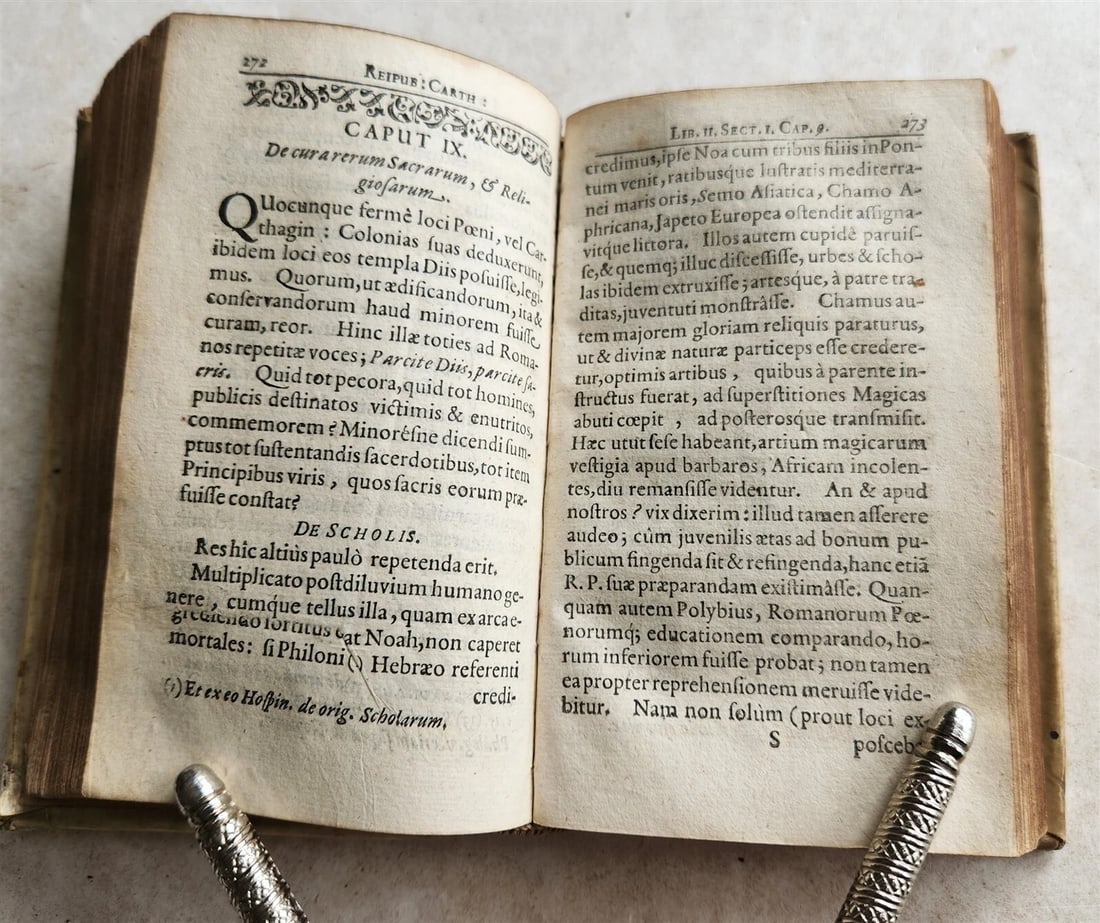 272
REIPUB: CARTH:
CAPUT IX.
De cura rerum Sacrarum, & Reli-
giosarum.
QUocunque fermè loci Pœni, vel Car-
thagin: Colonias suas deduxerunt,
ibidem loci eos templa Diis posuisse, legi-
mus. Quorum, ut ædificandorum, ita &
conservandorum haud minorem fuisse
curam, reor. Hinc illæ toties ad Roma-
nos repetitæ voces; Parcite Diis, parcite sa-
cris. Quid tot pecora, quid tot homines,
publicis destinatos victimis & enutritos,
commemorem? Minorésne dicendi sum-
ptus tot sustentandis sacerdotibus, tot item
Principibus viris, quos sacris eorum præ-
fuisse constat?
DE SCHOLIS.
Res hîc altiùs paulò repetenda erit.
Multiplicato post diluvium humano ge-
nere, cumque tellus illa, quam ex arca e-
grediendo sortitus erat Noah, non caperet
mortales: si Philoni (1) Hebræo referenti
credi-
(1) Et ex eo Hospin. de orig. Scholarum.
LIB. II. SECT. I. CAP. 9. 273
credimus, ipse Noa cum tribus filiis in Pon-
tum venit, ratibusque lustratis mediterra-
nei maris oris, Semo Asiatica, Chamo A-
phricana, Japeto Europea ostendit assigna-
vitque littora. Illos autem cupidè paruis-
se, & quemq; illuc discessisse, urbes & scho-
las ibidem extruxisse; artesque, à patre tra-
ditas, juventuti monstrâsse. Chamus au-
tem majorem gloriam reliquis paraturus,
ut & divinæ naturæ particeps esse credere-
tur, optimis artibus, quibus à parente in-
structus fuerat, ad superstitiones Magicas
abuti cœpit, ad posterosque transmisit.
Hæc utut sese habeant, artium magicarum
vestigia apud barbaros, Africam incolen-
tes, diu remansisse videntur. An & apud
nostros? vix dixerim: illud tamen asserere
audeo; cùm juvenilis ætas ad bonum pu-
blicum fingenda sit & refingenda, hanc etiã
R. P. suæ præparandam existimâsse. Quan-
quam autem Polybius, Romanorum Pœ-
norumq; educationem comparando, ho-
rum inferiorem fuisse probat; non tamen
ea propter reprehensionem meruisse vide-
bitur. Nam non solùm (prout loci ex-
S posceb